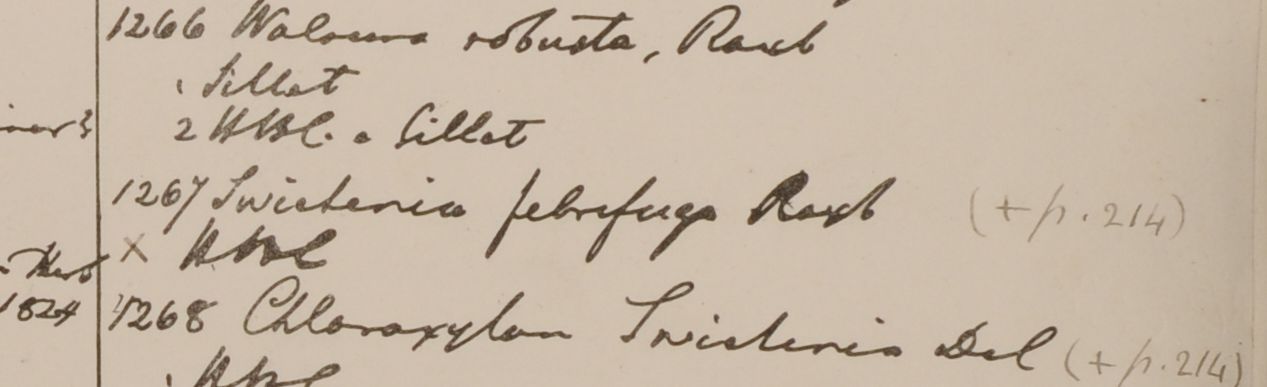 1266 Walsura robusta, Roxb
1 Sillet
2 HBC. e Sillet
ner 3
1267 Swietenia febrifuga Roxb (+ p. 214)
x HBC
Herb
1824
1268 Chloroxylon Swietenia Del (+ p. 214)
1 HBC